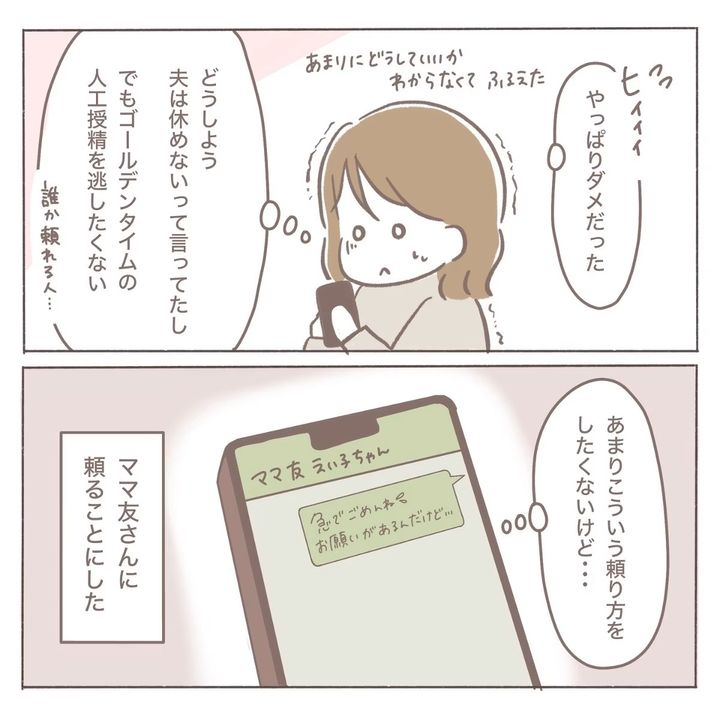 ヒィィィ
やっぱりダメだった
あまりにどうしていいか
わからなくて ふるえた
どうしよう
夫は休めないって言ってたし
でもゴールデンタイムの
人工授精を逃したくない
誰か頼れる人…
あまりこういう頼り方を
したくないけど・・・
ママ友 えい子ちゃん
急でごめんね
お願いがあるんだけど…
ママ友さんに
頼ることにした